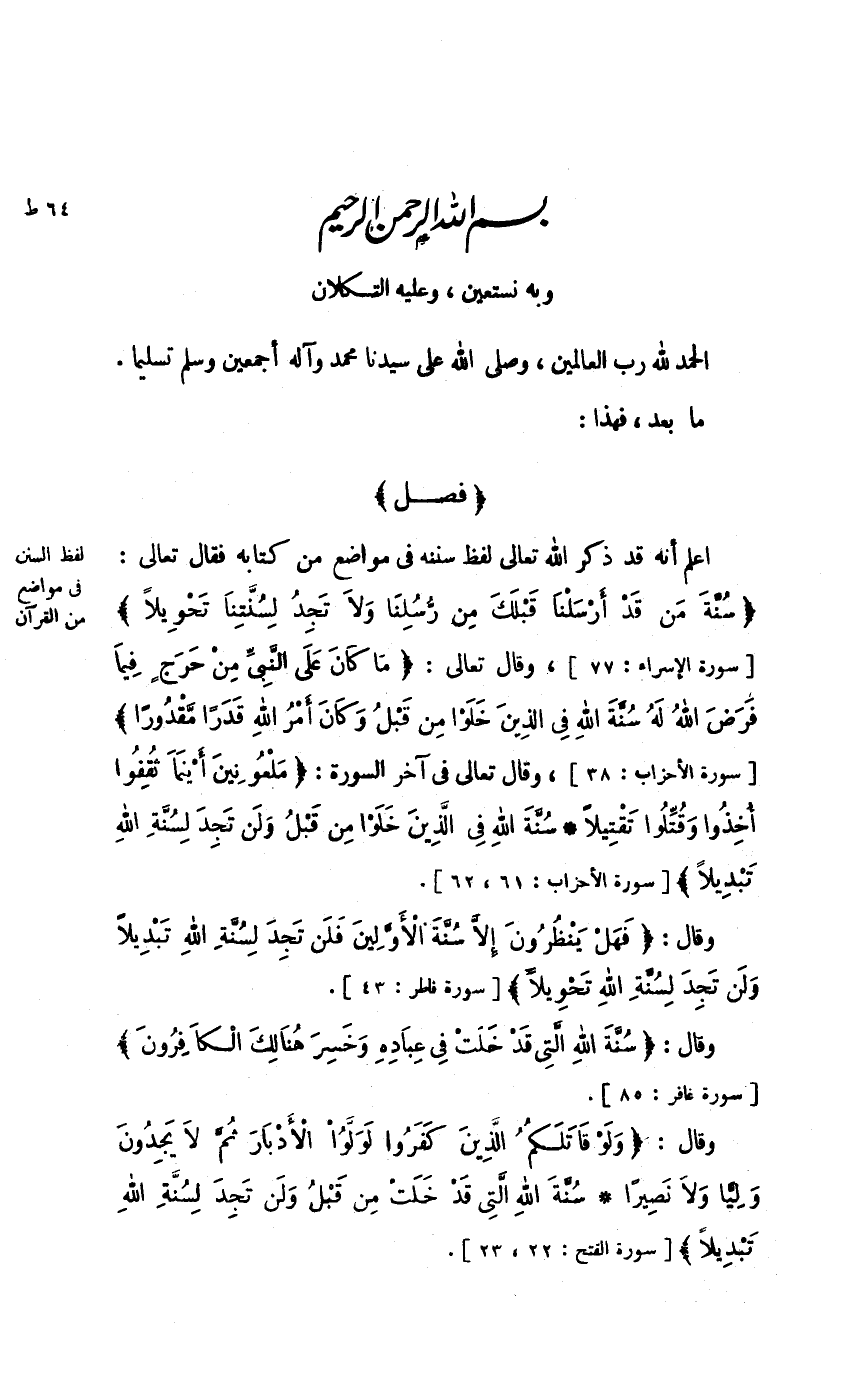 ٦٤ ظ
بسم الله الرحمن الرحيم
وبه نستعين ، وعليه التكلان
الحمد لله رب العالمين ، وصلى الله على سيدنا محمد وآله أجمعين وسلم تسليما .
ما بعد ، فهذا :
﴿ فصل ﴾
اعلم أنه قد ذكر الله تعالى لفظ سننه فى مواضع من كتابه فقال تعالى :
لفظ السنن
فى مواضع
من القرآن
﴿ سُنَّةَ مَن قَدْ أَرْسَلْنَا قَبْلَكَ مِن رُّسُلِنَا وَلاَ تَجِدُ لِسُنَّتِنَا تَحْوِيلاً ﴾
[ سورة الإسراء : ٧٧ ] ، وقال تعالى : ﴿ مَّا كَانَ عَلَى النَّبِيِّ مِنْ حَرَجٍ فِيمَا
فَرَضَ اللهُ لَهُ سُنَّةَ اللهِ فِى الذِينَ خَلَوْا مِن قَبْلُ وَكَانَ أَمْرُ اللهِ قَدَرًا مَّقْدُورًا ﴾
[ سورة الأحزاب : ٣٨ ] ، وقال تعالى فى آخر السورة : ﴿ مَلْعُونِينَ أَيْنَمَا ثُقِفُوا
أُخِذُوا وَقُتِّلُوا تَقْتِيلاً * سُنَّةَ اللهِ فِى الَّذِينَ خَلَوْا مِن قَبْلُ وَلَن تَجِدَ لِسُنَّةِ اللهِ
تَبْدِيلاً ﴾ [ سورة الأحزاب : ٦١ ، ٦٢ ] .
وقال : ﴿ فَهَلْ يَنْظُرُونَ إِلاَّ سُنَّةَ الْأَوَّلِينَ فَلَن تَجِدَ لِسُنَّةِ اللهِ تَبْدِيلاً
وَلَن تَجِدَ لِسُنَّةِ اللهِ تَحْوِيلاً ﴾ [ سورة فاطر : ٤٣ ] .
وقال : ﴿ سُنَّةَ اللهِ الَّتِى قَدْ خَلَتْ فِى عِبَادِهِ وَخَسِرَ هُنَالِكَ الْكَافِرُونَ ﴾
[ سورة غافر : ٨٥ ] .
وقال : ﴿ وَلَوْ قَاتَلَكُمُ الَّذِينَ كَفَرُوا لَوَلَّوُا الْأَدْبَارَ ثُمَّ لاَ يَجِدُونَ
وَلِيًّا وَلاَ نَصِيرًا * سُنَّةَ اللهِ الَّتِى قَدْ خَلَتْ مِن قَبْلُ وَلَن تَجِدَ لِسُنَّةِ اللهِ
تَبْدِيلاً ﴾ [ سورة الفتح : ٢٢ ، ٢٣ ] .